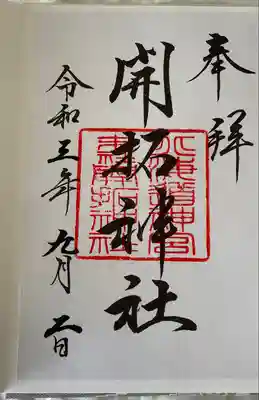 奉拝
開拓神社
北海道神宮
令和三年 九月 二日